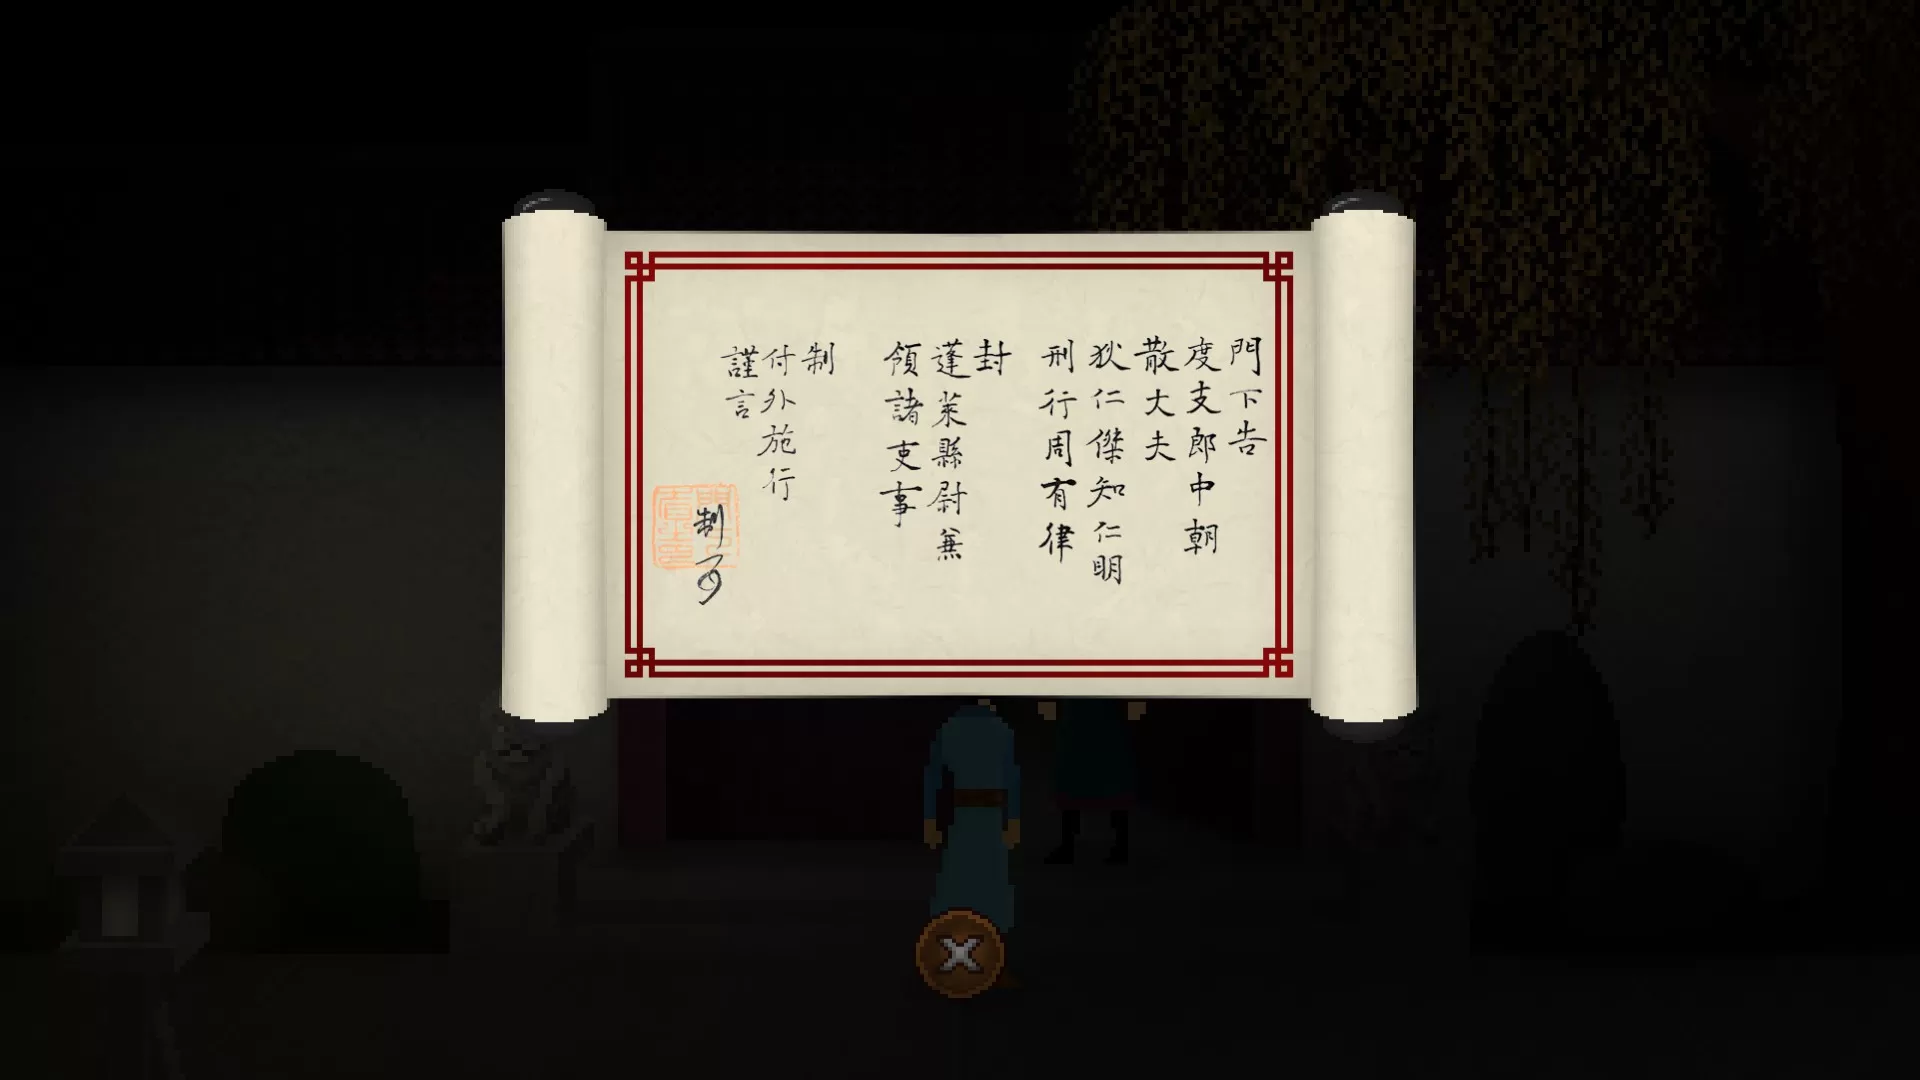 門下告
度支郎中朝
散大夫
狄仁傑知仁明
刑行周有律
封
蓬萊縣尉兼
領諸吏事
制
付外施行
謹言
制可